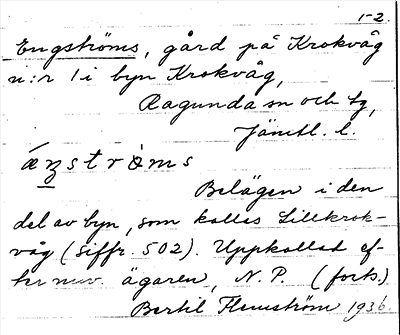 1-2.
Engströms, gård på Krokvåg
n:r 1 i byn Krokvåg,
Ragunda sn och tg,
Jämtl. l.
Belägen i den
del av byn, som kallas Lillkrok-
våg (siffr. 502). Uppkallad ef-
ter nuv. ägaren, N. P. (forts.)
Bertil Flemström 1936